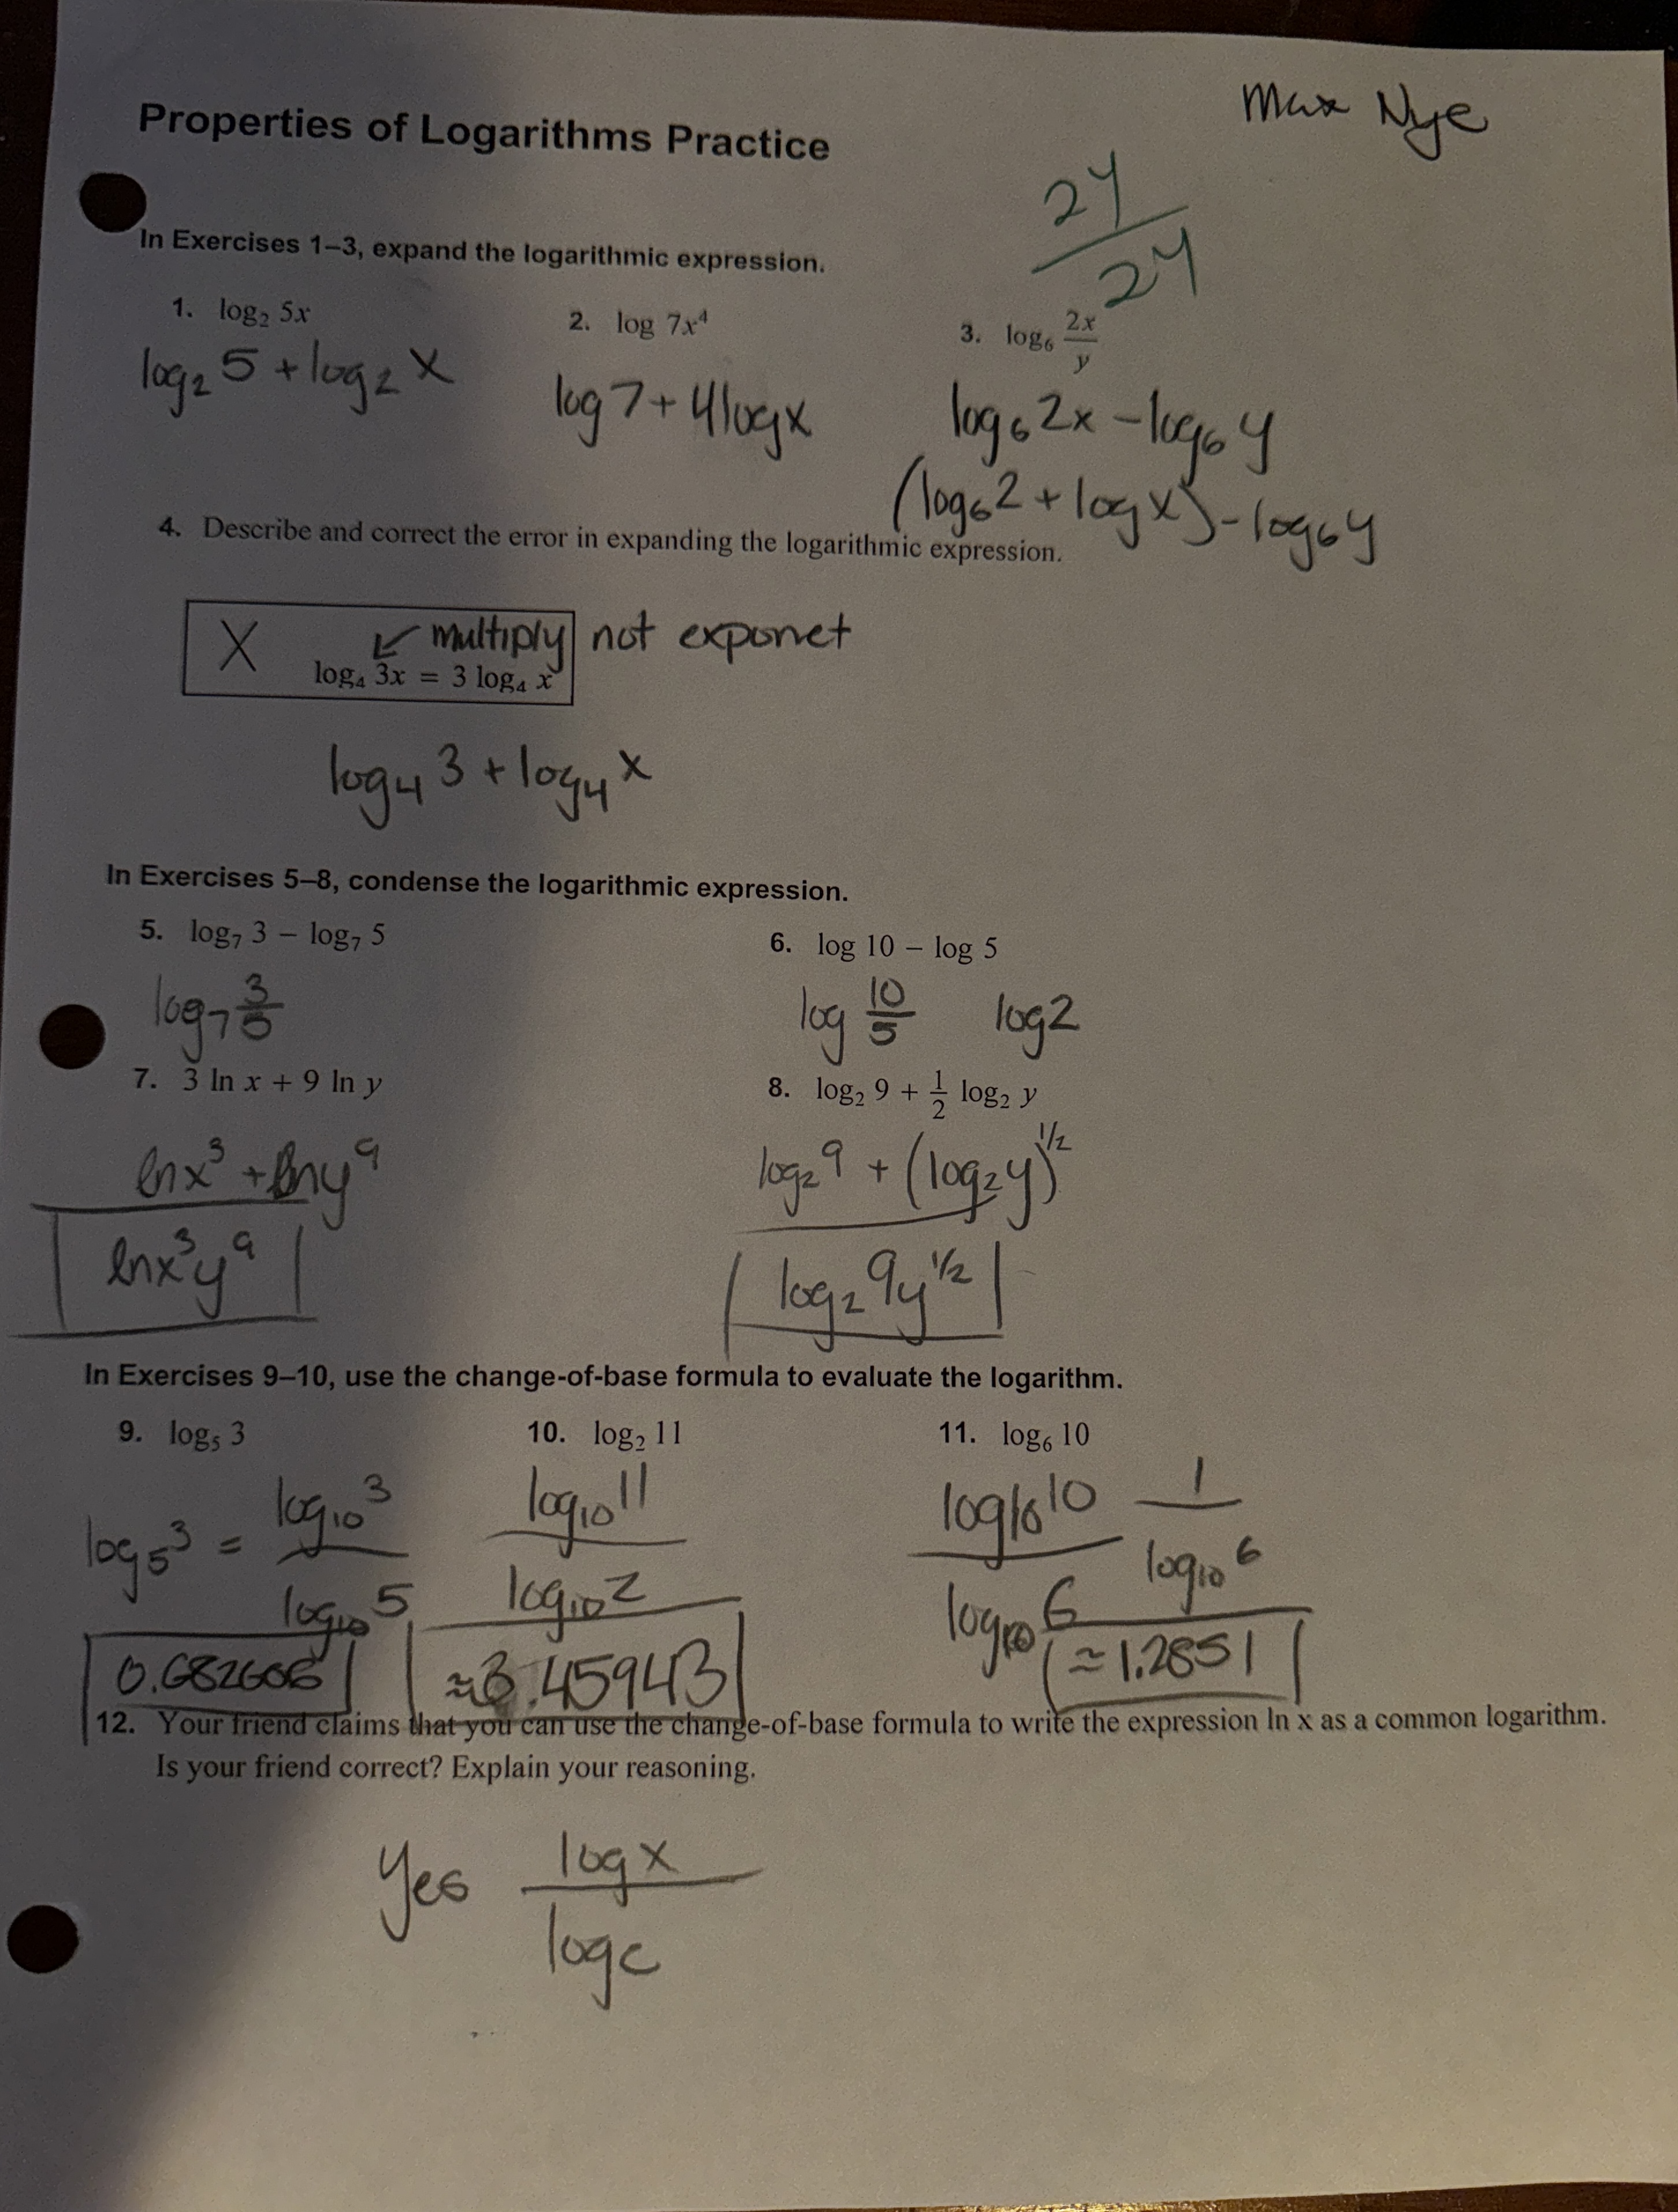 Max Nye
Properties of Logarithms Practice
24/24
In Exercises 1–3, expand the logarithmic expression.
1. log₂ 5x
2. log 7x⁴
3. log₆ 2x/y
log₂ 5 + log₂ x
log 7 + 4 log x
log₆ 2x – log₆ y
(log₆ 2 + log x) – log₆ y
4. Describe and correct the error in expanding the logarithmic expression.
X ↙ multiply not exponet
log₄ 3x = 3 log₄ x
log₄ 3 + log₄ x
In Exercises 5–8, condense the logarithmic expression.
5. log₇ 3 – log₇ 5
6. log 10 – log 5
log₇ 3/5
log 10/5 log 2
7. 3 ln x + 9 ln y
8. log₂ 9 + 1/2 log₂ y
ln x³ + ln y⁹
log₂ 9 + (log₂ y)^1/2
ln x³y⁹
log₂ 9y^1/2
In Exercises 9–10, use the change-of-base formula to evaluate the logarithm.
9. log₅ 3
10. log₂ 11
11. log₆ 10
log₅ 3 = log₁₀ 3/log₁₀ 5
log₁₀ 11/log₁₀ 2
log₁₀ 10/log₁₀ 6 1/log₁₀ 6
0.682606
≈3.45943
≈1.2851
12. Your friend claims that you can use the change-of-base formula to write the expression ln x as a common logarithm.
Is your friend correct? Explain your reasoning.
Yes log x/log e